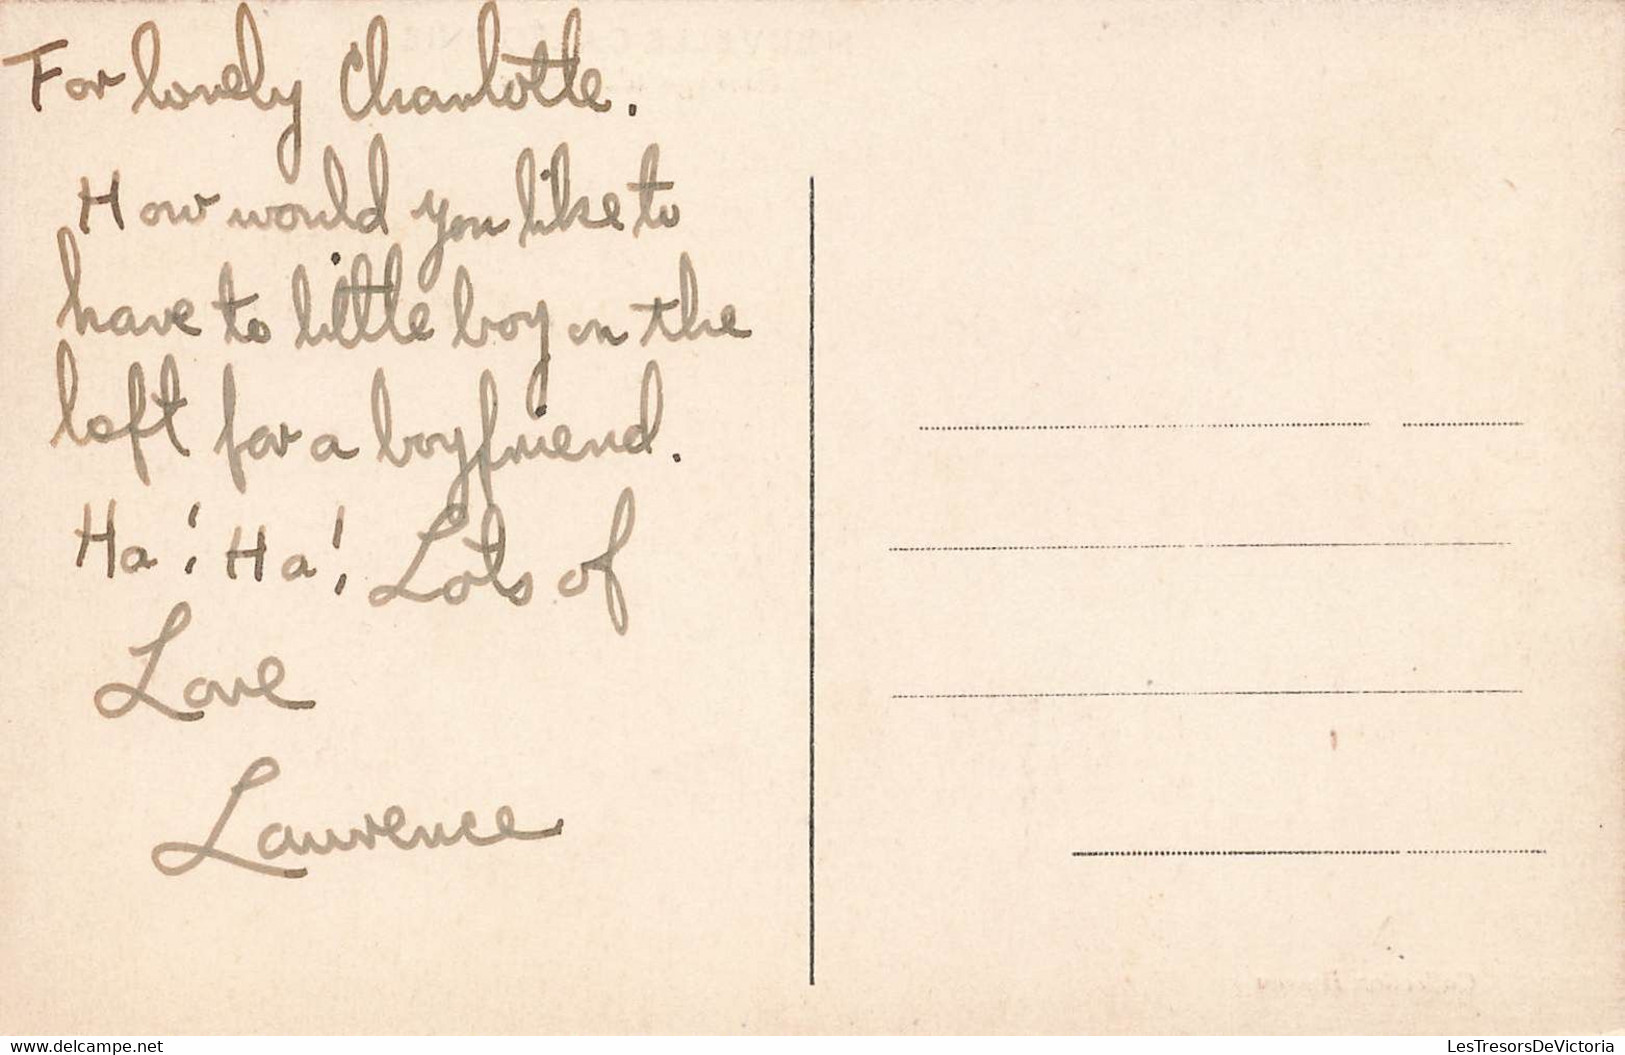 For lovely Charlotte.
How would you like to
have to little boy on the
left for a boyfriend.
Ha! Ha! Lots of
Love
Laurence
www.delcampe.net
LesTresorsDeVictoria